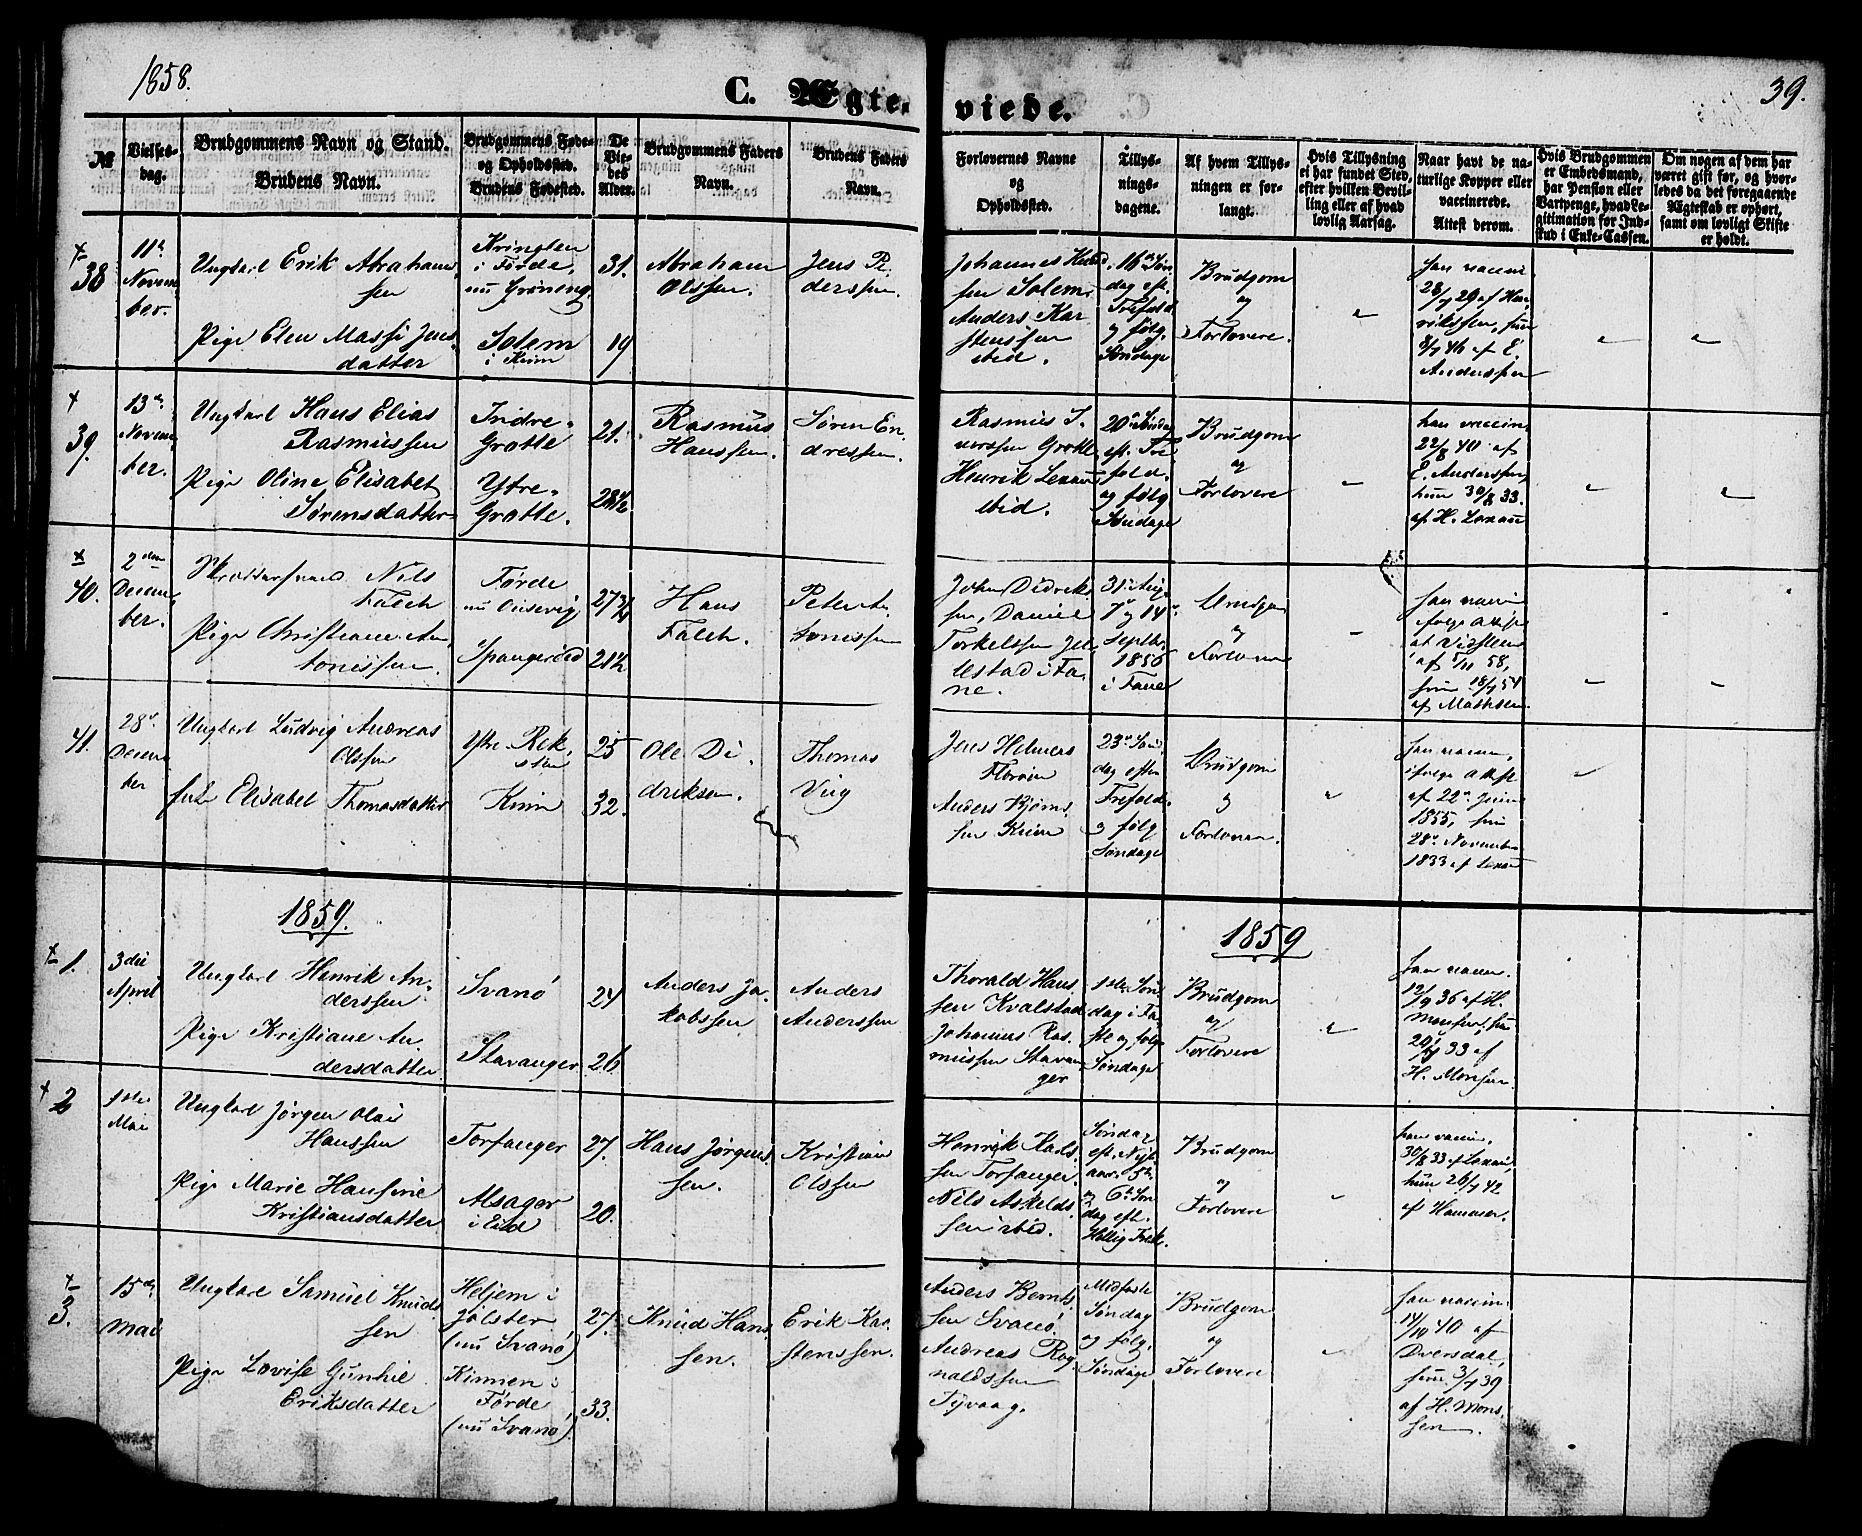 1858.
C. Ægte-
viede.
39.
№
Vielses-
dag.
Brudgommens Navn og Stand.
Brudens Navn.
Brudgommens Føde-
og Opholdssted.
Brudens Fødested.
De
Vie-
des
Alder.
Brudgommens Faders
Navn.
Brudens Faders
Navn.
Forlovernes Navne
og
Opholdssted.
Tillys-
nings-
dagene.
Af hvem Tillys-
ningen er for-
langt.
Hvis Tillysning
ei har fundet Sted,
efter hvilken Bevil-
ling eller af hvad
lovlig Aarsag.
Naar havt de na-
turlige Kopper eller
vaccinerede.
Attest derom.
Hvis Brudgommen
er Embedsmand,
har Pension eller
Vartpenge, hvad Le-
gitimation for Ind-
skud i Enke-Cassen.
Om nogen af dem har
været gift før, og hvor-
ledes da det foregaaende
Ægteskab er ophørt,
samt om lovligt Skifte
er holdt.
38
11te
Novem
ber.
Ungkarl Erik Abraham
sen
Pige Elen Massi Jens
datter
i Førde,
nu Grøning
Solem
i Kinn
31.
19
Abraham
Olssen.
Jens Pe
derssen.
Johannes
sen Solem.
Anders Kar
stenssen
ibid.
16de Søn
dag eft.
Trefold.
og følg.
Søndage
Brudgom
og
Forlovere.
han vaccin
28/7 29 af Hen
rikssen, hun
8/7 46 af E.
Anderssen
39.
13de
Novem
ber.
Ungkarl Hans Elias
Rasmussen
Pige Oline Elisabet
Sørensdatter
Indre-
Grotle
Ytre-
Grotle.
21.
28½
Rasmus
Hanssen.
Søren En
dressen.
Rasmus I
verssen Grotle
Henrik
ibid.
20de Søndag
eft. Tre
fold.
og følg
Søndage
Brudgom
og
Forlovere
han vaccin
22/8 40 af
E. Anderssen
hun 30/8 33.
af H. Lexau
40.
2den
Decem
ber.
Nils
Falch
Pige Christiane An
tonissen.
Førde
nu
Spangerid
27¾
21½
Hans
Falch.
Peter An
tonissen
John Didrik
sen, Daniel
Torkelssen Jel
lestad i Fa
ne.
31te Aug.
7de og 14de
Septbr.
1856
i Fane
Brudgom
og
Forlovere
han vaccin
ifølge Attest
af 5/11 58,
hun 18/7 54
af Mathesen.
41.
28de
Decem
ber
Ungkarl Ludvig Andreas
Olssen
Elisabet Thomasdatter
Ytre Rek
sten
Kinn
25
32.
Ole Di
driksen.
Thomas
Viig
Jens Helmers
Florøen
Anders Bjørns
sen Kinn
23de Søn
dag efter
Trefold.
og følg
Søndage
Brudgom
og
Forlovere.
han vaccin,
ifølge Attst
af 22de Juni
1855, hun
28de November
1833 af Lexau
1859.
1859
1.
3die
April
Ungkarl Henrik An
derssen
Pige Kristiane An
dersdatter
Svanø
Stavanger
24
26
Anders Ja
kobssen
Anders
Anderssen
Thorald Hans
sen Kvalstad
Johannes Ras
mussen Stavan
ger
1ste Søn
dag i Fa
ste og følg
Søndage
Brudgom
og
Forlovere
han vaccin.
12/9 36 af H.
Monsen, hun
33 af
H. Monsen.
2
1ste
Mai
Ungkarl Jørgen Olai
Hanssen
Pige Marie Hansine
Kristiansdatter
Torfanger
Alsager
i Eid
27.
20.
Hans Jørgens
sen.
Kristian
Olssen
Henrik Karls
sen Torfanger.
Nils Askelds
sen ibid.
Søndag
eft. Nyt
aar. 5te
og 6te Søn
dag eft.
Hellig Trek.
Brudgom
og
Forlovere
han vaccin.
30/8 33 af Lexau
hun 26/7 42
af Hammer.
3.
15de
Mai
Ungkarl Samuel Knuds
sen
Pige Lovise Gunhil
Eriksdatter
Heljem i
Jølster
(nu Svanø)
Kinnen i
Førde
(nu Svanø).
27.
33.
Knud Hans
sen.
Erik Kar
stenssen.
Anders Bernts
sen Svanø.
Andreas Rag
naldssen
Tyvaag.
Midfaste
Søndag
og følg.
Søndage
Brudgom
og
Forlovere
han vaccin.
14/10 40 af
Dversdal,
hun 3/7 39
af H. Mons
sen.